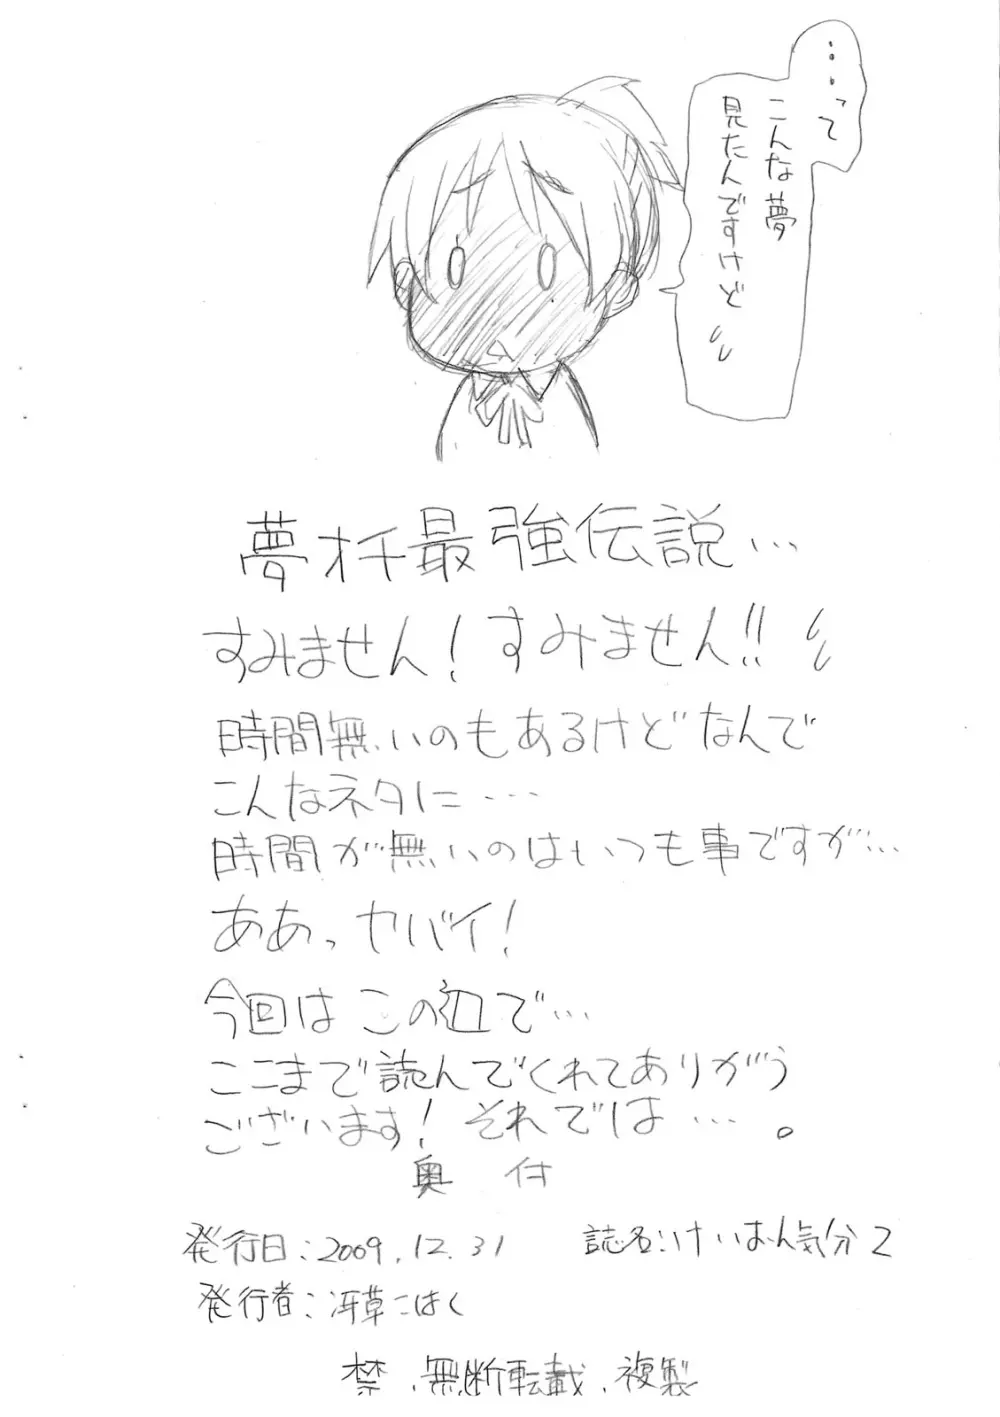 …って
こんな夢
見たんですけど
夢オチ最強伝説…
すみません!すみません!!
時間無いのもあるけどなんで
こんなネタに…
時間が無いのはいつも事ですが…
ああっヤバイ!
今回はこの辺で…
ここまで読んでくれてありがう
ございます!それでは…。
奥 付
発行日:2009.12.31 誌名:けいおん気分2
発行者:冴草こはく
禁.無断転載.複製